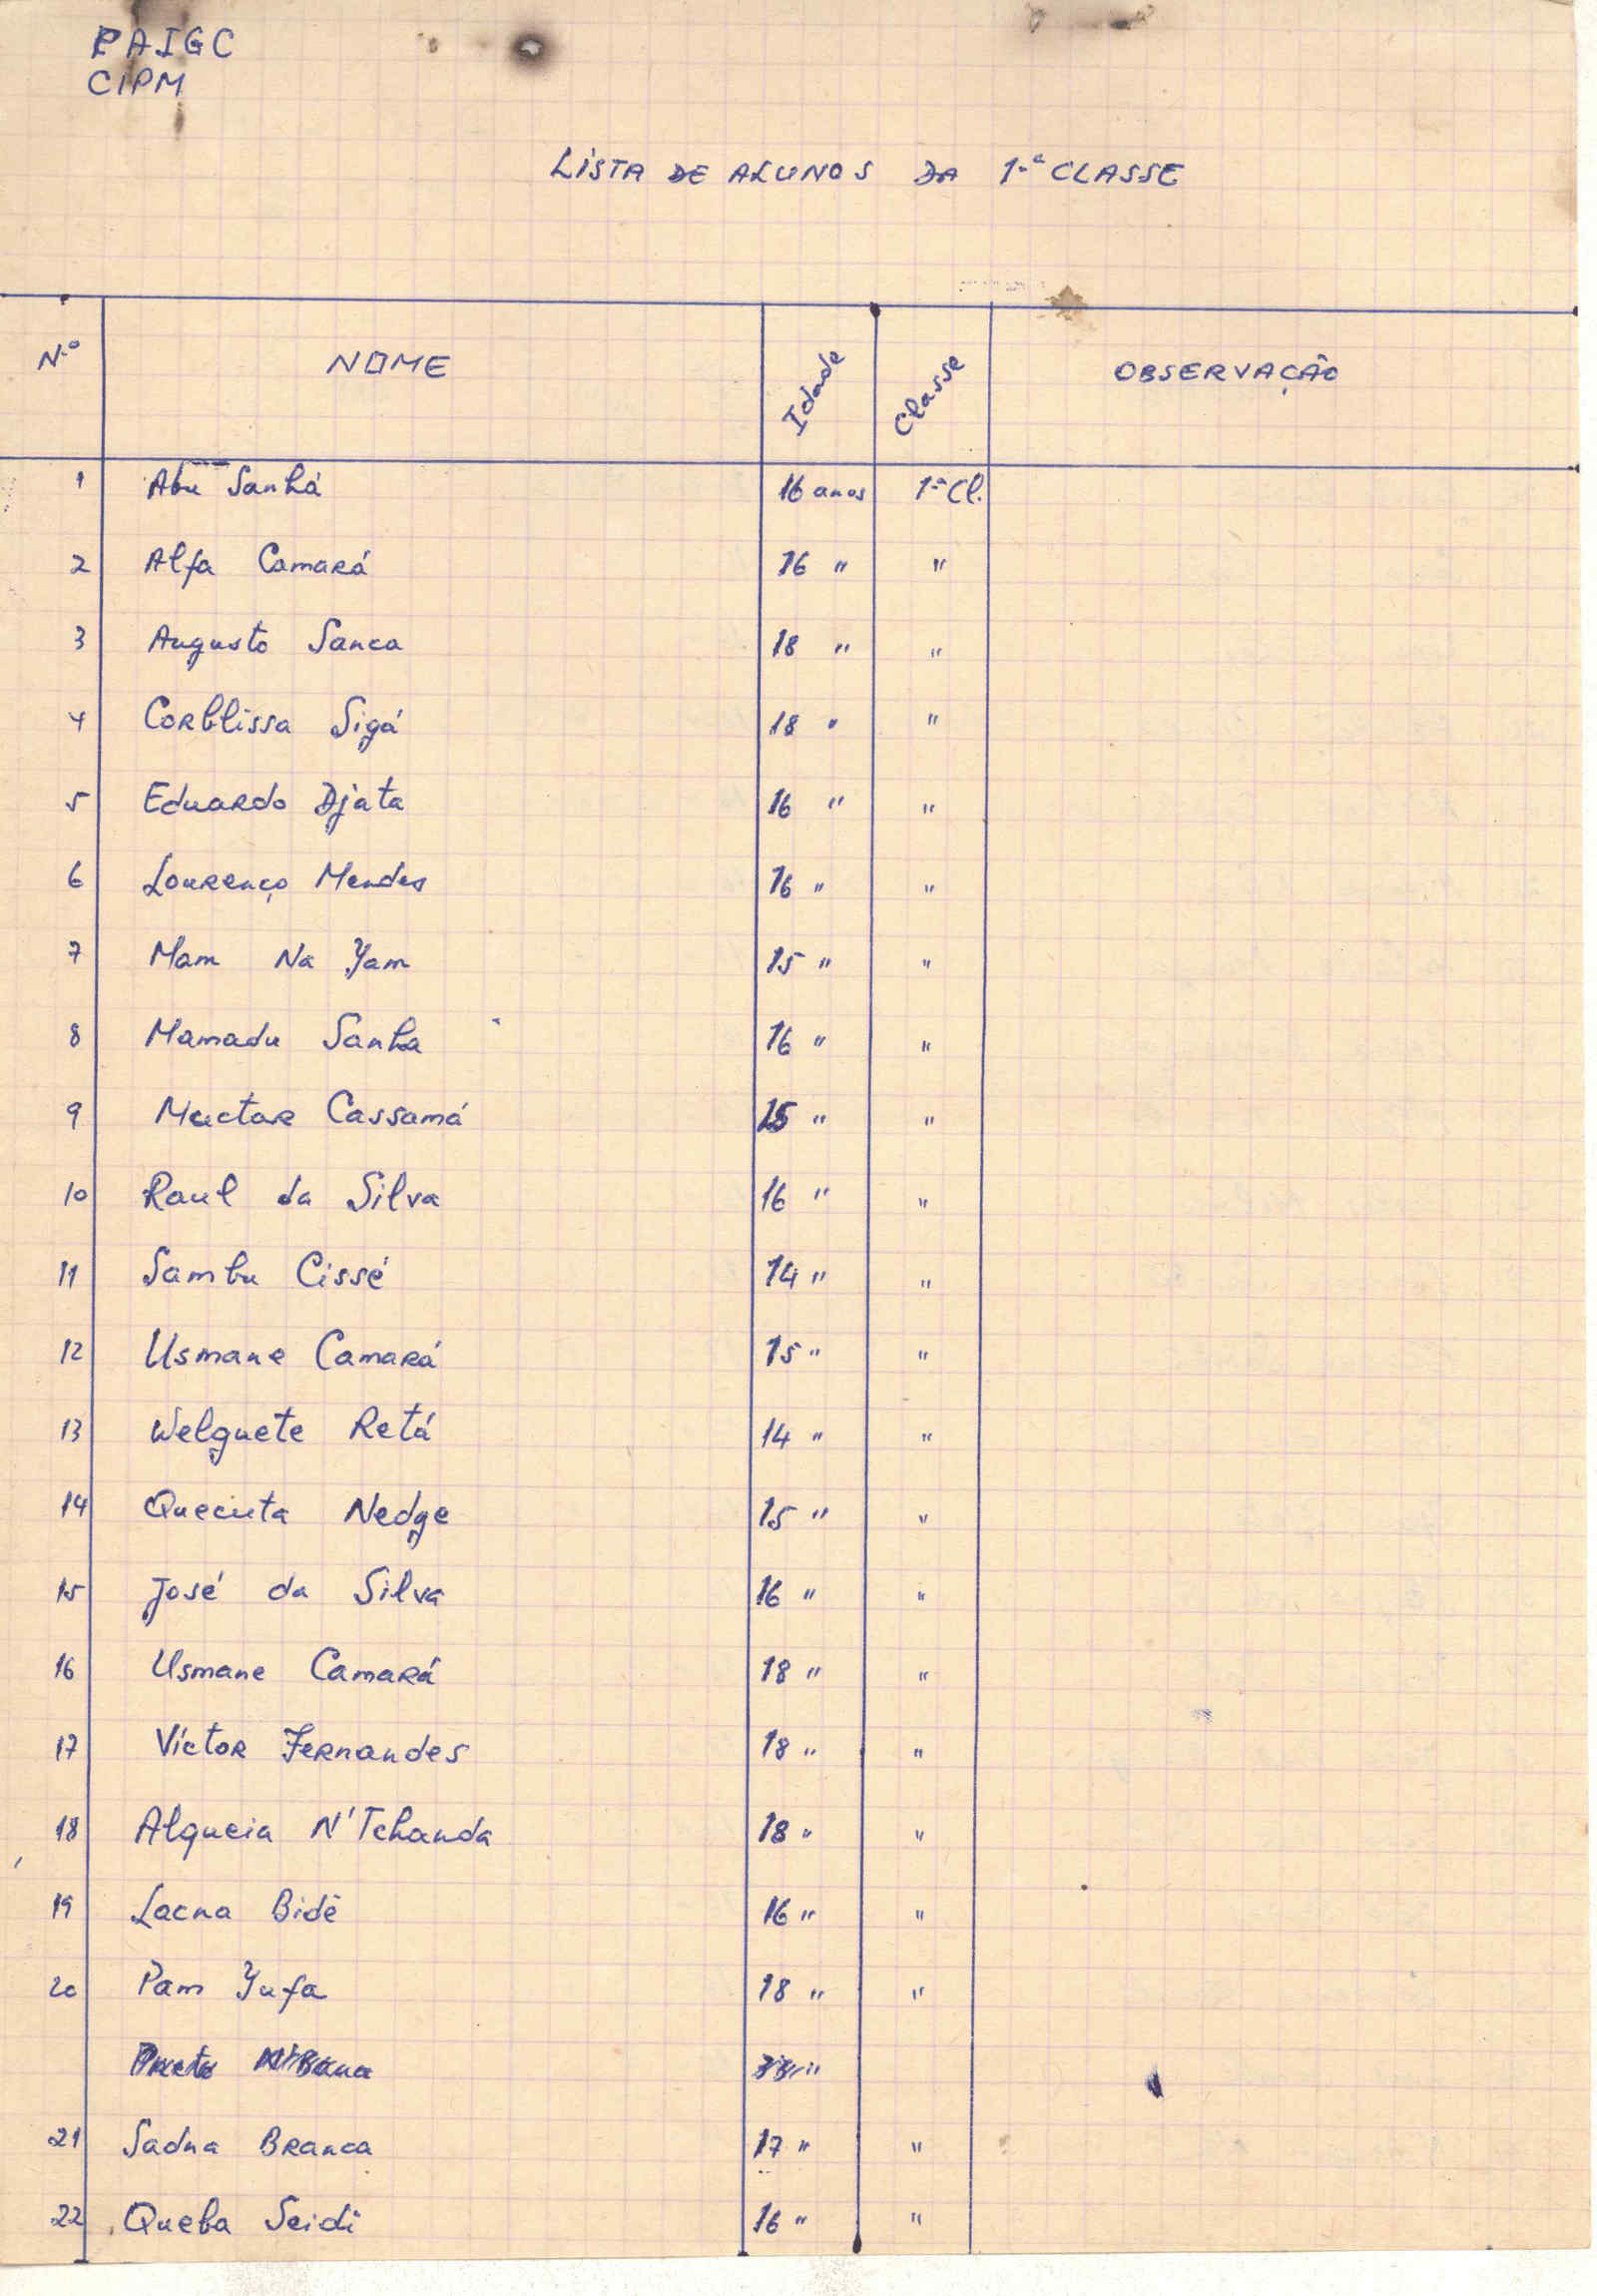 PAIGC
CIPM
LISTA DE ALUNOS DA 1.ª CLASSE
N.º NOME Idade Classe OBSERVAÇÃO
1 Abu Sanhá 16 anos 1.ª Cl.
2 Alfa Camará 16 " "
3 Augusto Sanca 18 " "
4 Corblissa Sigá 18 " "
5 Eduardo Djata 16 " "
6 Lourenço Mendes 16 " "
7 Mam Na Yam 15 " "
8 Mamadu Sanha 16 " "
9 Muctar Cassamá 15 " "
10 Raul da Silva 16 " "
11 Sambu Cissé 14 " "
12 Usmane Camará 15 " "
13 Welguete Retá 14 " "
14 Quecuta Nedge 15 " "
15 José da Silva 16 " "
16 Usmane Camará 18 " "
17 Victor Fernandes 18 " "
18 Algueia N'Tchanda 18 " "
19 Lacna Bidé 16 " "
20 Pam Yufa 18 " "
21 Sadna Branca 17 " "
22 Queba Seidi 16 " "